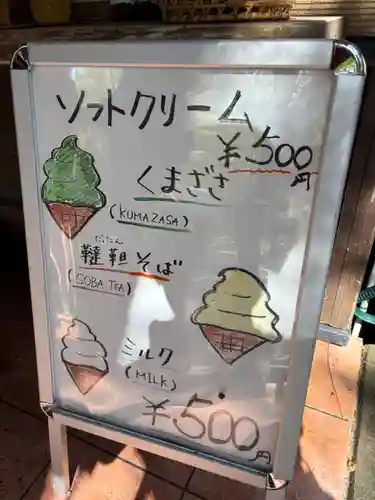 ソフトクリーム
¥500円
くまざさ
(KUMAZASA)
だったん
韃靼そば
(SOBA TEA)
ミルク
(MILK)
¥500円